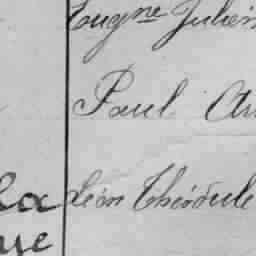 Eugne Julien
Paul
La Léon Théodule